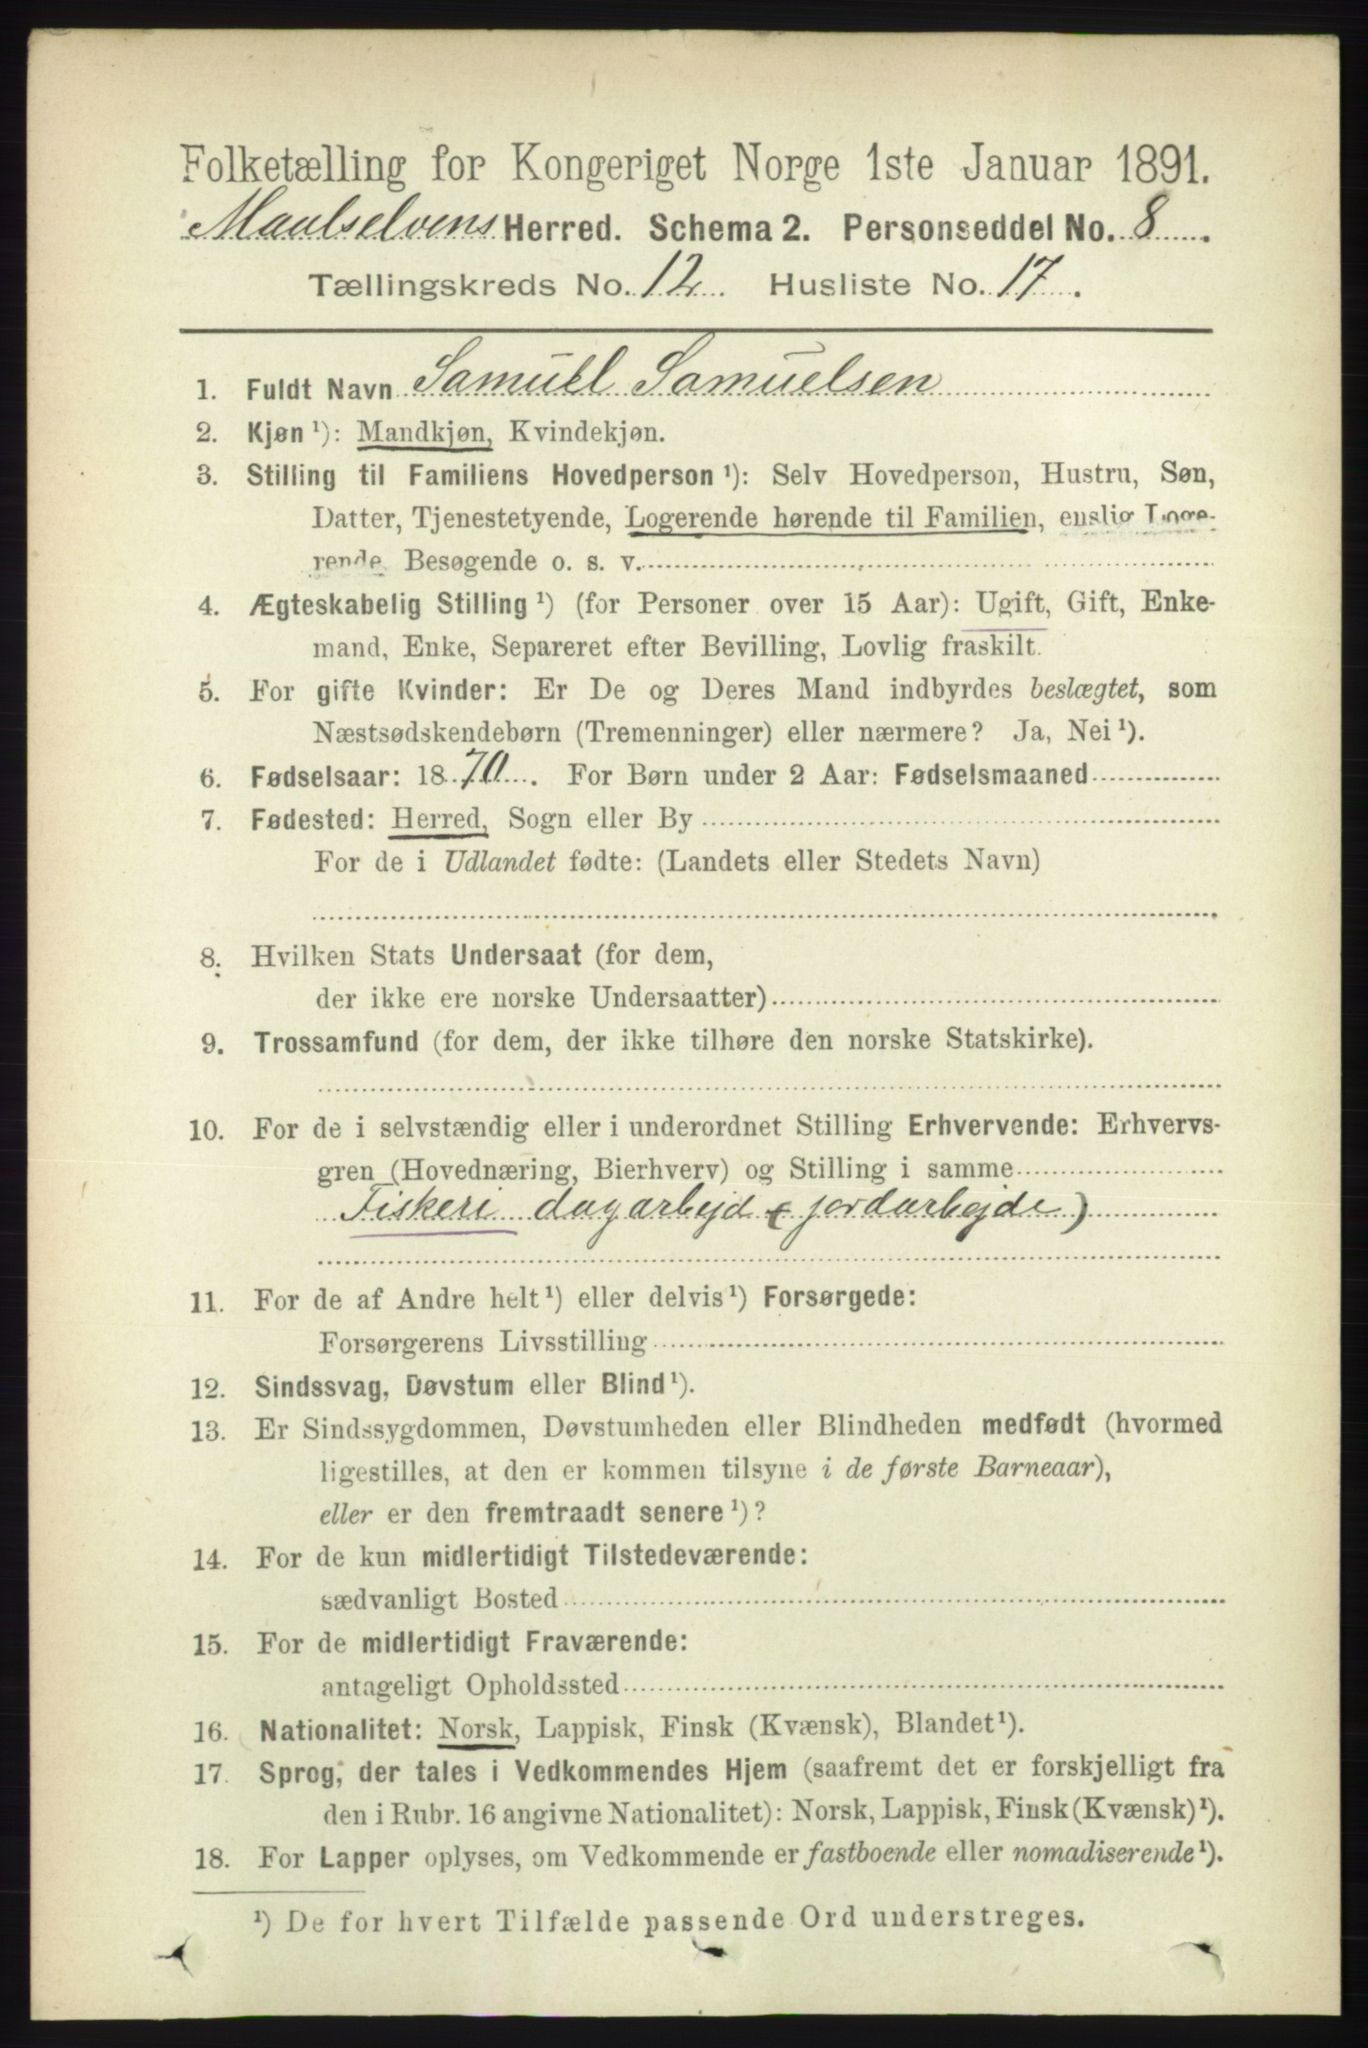 Folketælling for Kongeriget Norge 1ste Januar 1891.
Maalselvens Herred. Schema 2. Personseddel No. 8.
Tællingskreds No. 12. Husliste No. 17.
1. Fuldt Navn Samuel Samuelsen
2. Kjøn ¹): Mandkjøn, Kvindekjøn.
3. Stilling til Familiens Hovedperson ¹): Selv Hovedperson, Hustru, Søn,
Datter, Tjenestetyende, Logerende hørende til Familien, enslig Loge-
rende, Besøgende o. s. v.
4. Ægteskabelig Stilling ¹) (for Personer over 15 Aar): Ugift, Gift, Enke-
mand, Enke, Separeret efter Bevilling, Lovlig fraskilt.
5. For gifte Kvinder: Er De og Deres Mand indbyrdes beslægtet, som
Næstsødskendebørn (Tremenninger) eller nærmere? Ja, Nei ¹).
6. Fødselsaar: 1870. For Børn under 2 Aar: Fødselsmaaned
7. Fødested: Herred, Sogn eller By
For de i Udlandet fødte: (Landets eller Stedets Navn)
8. Hvilken Stats Undersaat (for dem,
der ikke ere norske Undersaatter)
9. Trossamfund (for dem, der ikke tilhøre den norske Statskirke).
10. For de i selvstændig eller i underordnet Stilling Erhvervende: Erhvervs-
gren (Hovednæring, Bierhverv) og Stilling i samme
Fiskeri dagarbejd (jordarbejde)
11. For de af Andre helt ¹) eller delvis ¹) Forsørgede:
Forsørgerens Livsstilling
12. Sindssvag, Døvstum eller Blind ¹).
13. Er Sindssygdommen, Døvstumheden eller Blindheden medfødt (hvormed
ligestilles, at den er kommen tilsyne i de første Barneaar),
eller er den fremtraadt senere ¹)?
14. For de kun midlertidigt Tilstedeværende:
sædvanligt Bosted
15. For de midlertidigt Fraværende:
antageligt Opholdssted
16. Nationalitet: Norsk, Lappisk, Finsk (Kvænsk), Blandet ¹).
17. Sprog, der tales i Vedkommendes Hjem (saafremt det er forskjelligt fra
den i Rubr. 16 angivne Nationalitet): Norsk, Lappisk, Finsk (Kvænsk) ¹).
18. For Lapper oplyses, om Vedkommende er fastboende eller nomadiserende ¹).
¹) De for hvert Tilfælde passende Ord understreges.